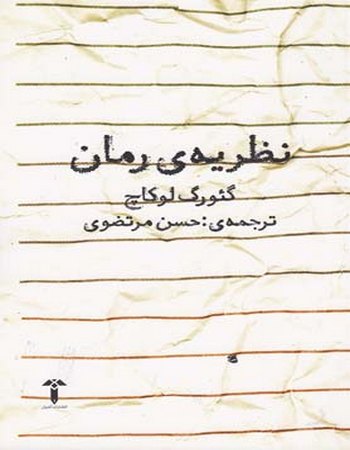 نظریه‌ی رمان
گئورگ لوکاچ
ترجمه‌ی: حسن مرتضوی